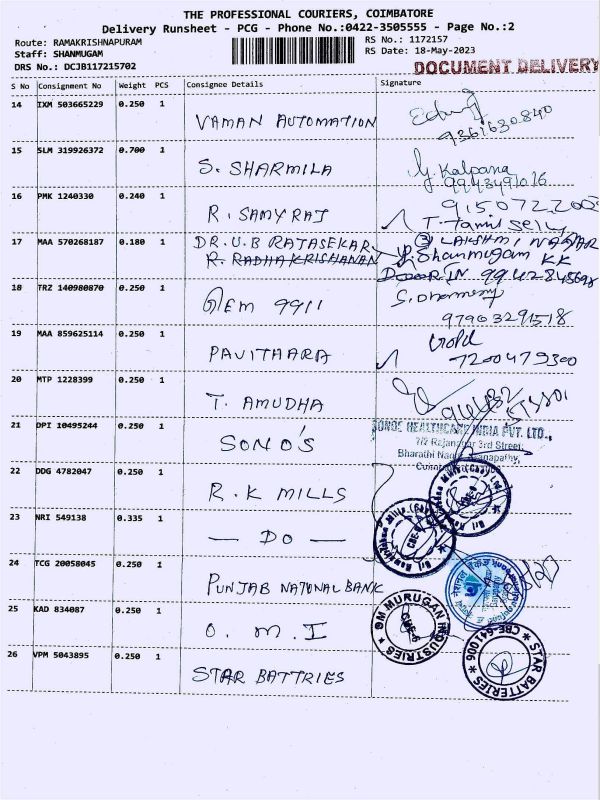 THE PROFESSIONAL COURIERS, COIMBATORE
Delivery Runsheet - PCG - Phone No.:0422-3505555 - Page No.:2
Route: RAMAKRISHNAPURAM
Staff: SHANMUGAM
DRS No.: DCJB117215702
RS No.: 1172157
RS Date: 18-May-2023
DOCUMENT DELIVERY
S No Consignment No Weight PCS Consignee Details Signature
14 IXM 503665229 0.250 1 VAMAN AUTOMATION
9361630840
15 SLM 319926372 0.700 1 S. SHARMILA Kalpana
9943491016
16 PMK 1240330 0.240 1 R. SAMYRAJ
T. Tamil Selly
17 MAA 570268187 0.180 1 DR. U.B RAJASEKAR LAKSHMI NAGAR
R. RADHAKRISHANAN Shanmugam KK
18 TRZ 140980870 0.250 1 GEM 9911
97903291518
19 MAA 859625114 0.250 1 PAVITHARA Gold
7200479300
20 MTP 1228399 0.250 1 T. AMUDHA
21 DPI 10495244 0.250 1 SONO'S
SONOE HEALTHCARE INDIA PVT. LTD.,
7/2 Rajanagar 3rd Street,
Bharathi Nagar, Ganapathy,
22 DDG 4782047 0.250 1 R.K MILLS
23 NRI 549138 0.335 1 — DO —
24 TCG 20058045 0.250 1 PUNJAB NATIONAL BANK
25 KAD 834087 0.250 1 O. M. I
OM MURUGAN INDUSTRIES
26 VPM 5043895 0.250 1 STAR BATTRIES
STAR BATTERIES
CBE-641 006